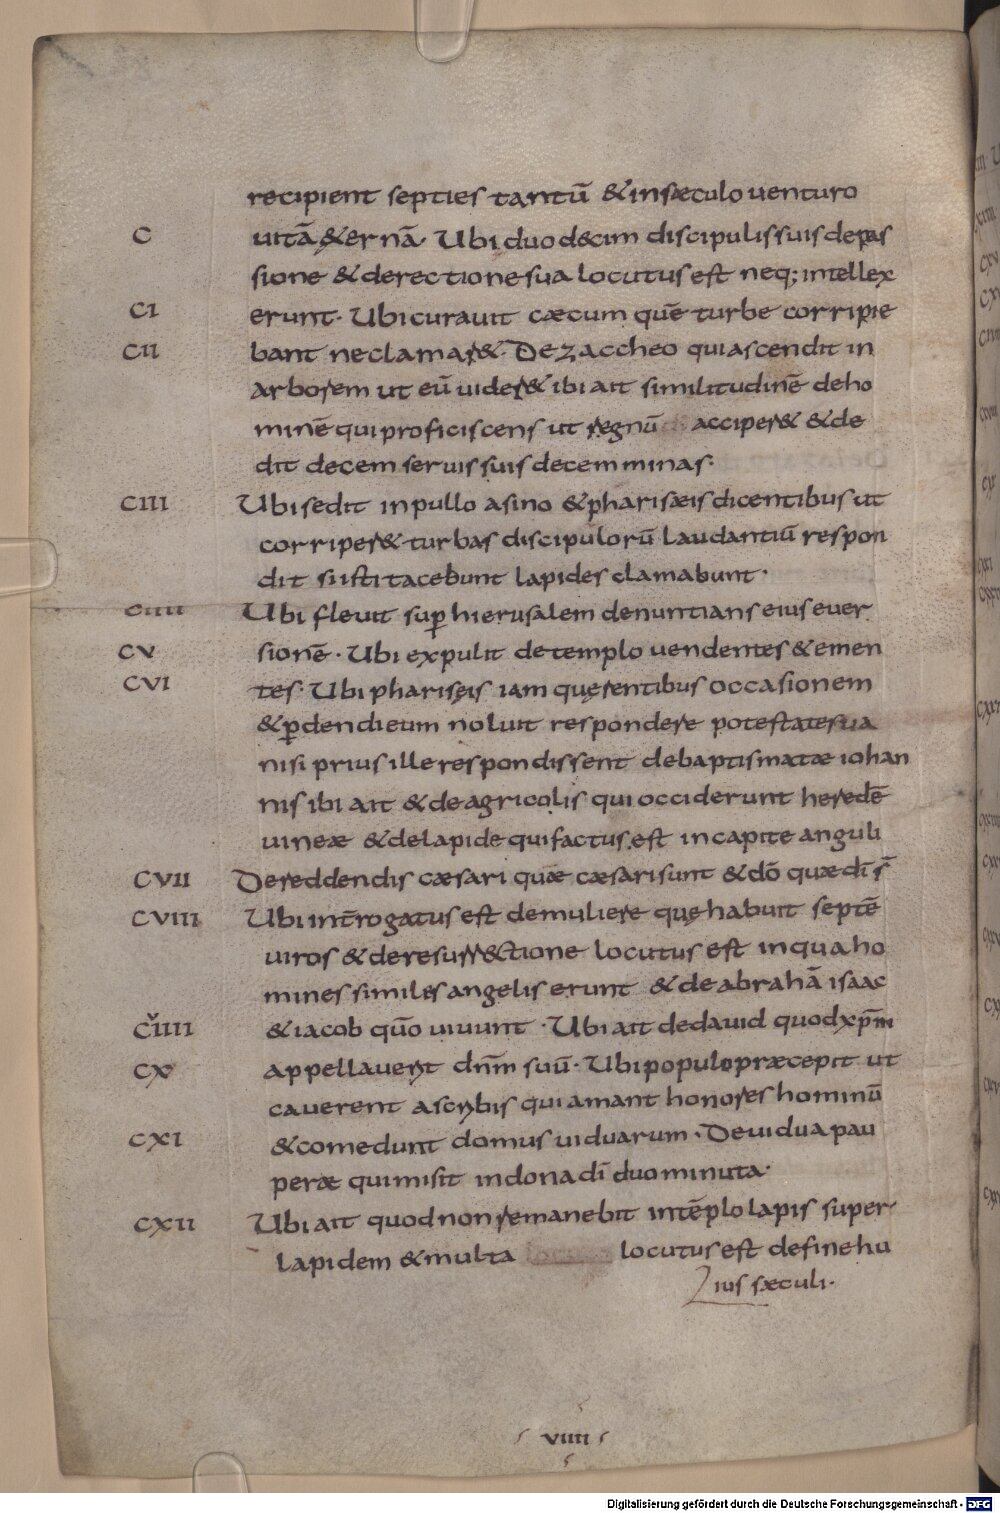 recipient septies tantū & insæculo venturo
C uitā &ernā. Ubi duodecim discipulis suis depas
sione & derectione sua locutus est neq; intellex
CI erunt. Ubi curauit cæcum quē turbe corripie
CII bant neclamar&. Dezaccheo qui ascendit in
arborem ut eū uider& ibi ait similitudinē deho
minē qui proficiscens ut regnū acciper& & de
dit decem seruis suis decem minas.
CIII Ubi sedit inpullo asino & pharisæis dicentibus ut
corriper& turbas discipulorū laudantiū respon
dit si isti tacebunt lapides clamabunt.
CIIII Ubi fleuit suꝑ hierusalem denuntians eius euer
CV sionē. Ubi expulit detemplo uendentes & emen
CVI tes. Ubi pharisęis iam quęrentibus occasionem
& ꝑdendi eum noluit respondere potestate sua
nisi prius ille respondissent debaptismatæ iohan
nis ibi ait & deagricolis qui occiderunt heredē
uineæ & delapide qui factus est incapite anguli
CVII Dereddendis cæsari quæ cæsari sunt & dō quæ dī s̄
CVIII Ubi intērogatus est demuliere quę habuit septē
uiros & deresurr&ctione locutus est inqua ho
mines similes angelis erunt & deabrahā isaac
CVIIII & iacob quō uiuunt. Ubi ait dedauid quod xp̄m
CX appellauerit dn̄m suū. Ubi populo præcepit ut
cauerent ascribis qui amant honores hominū
CXI & comedunt domus uiduarum. Deuidua pau
peræ qui misit indona dī duo minuta.
CXII Ubi ait quod non remanebit intēplo lapis super
lapidem & multa locutus est definehu
ius sæculi.
VIIII
Digitalisierung gefördert durch die Deutsche Forschungsgemeinschaft - DFG